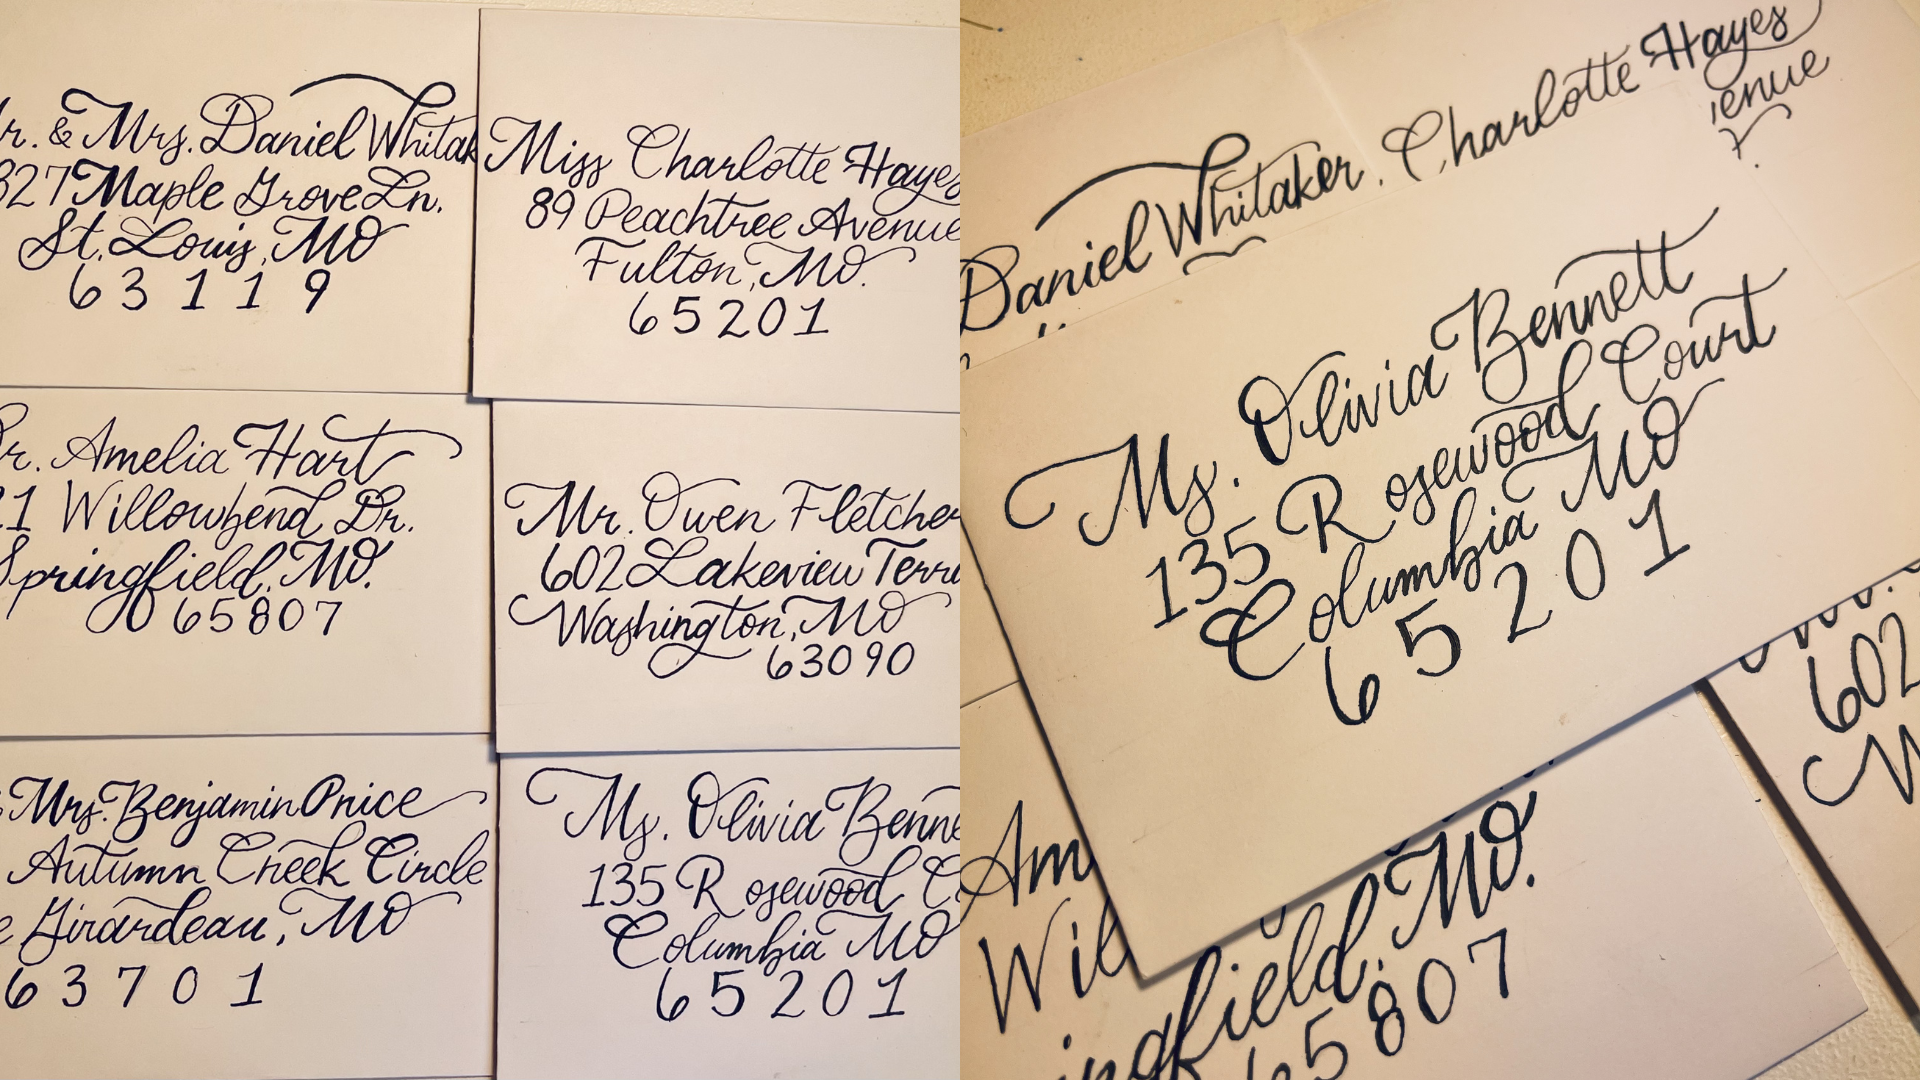 r. & Mrs. Daniel Whitak
327 Maple Grove Ln.
St. Louis, MO
63119
Miss Charlotte Hayes
89 Peachtree Avenue
Fulton, MO.
65201
r. Amelia Hart
21 Willowbend Dr.
Springfield, MO.
65807
Mr. Owen Fletcher
602 Lakeview Terr
Washington, MO
63090
Mrs. Benjamin Price
Autumn Creek Circle
e Girardeau, MO
63701
Ms. Olivia Benne
135 Rosewood C
Columbia MO
65201
Daniel Whitaker.
Charlotte Hayes
enue
Ms. Olivia Bennett
135 Rosewood Court
Columbia MO
65201
Am
Wil
ingfield, MO.
65807
602
W